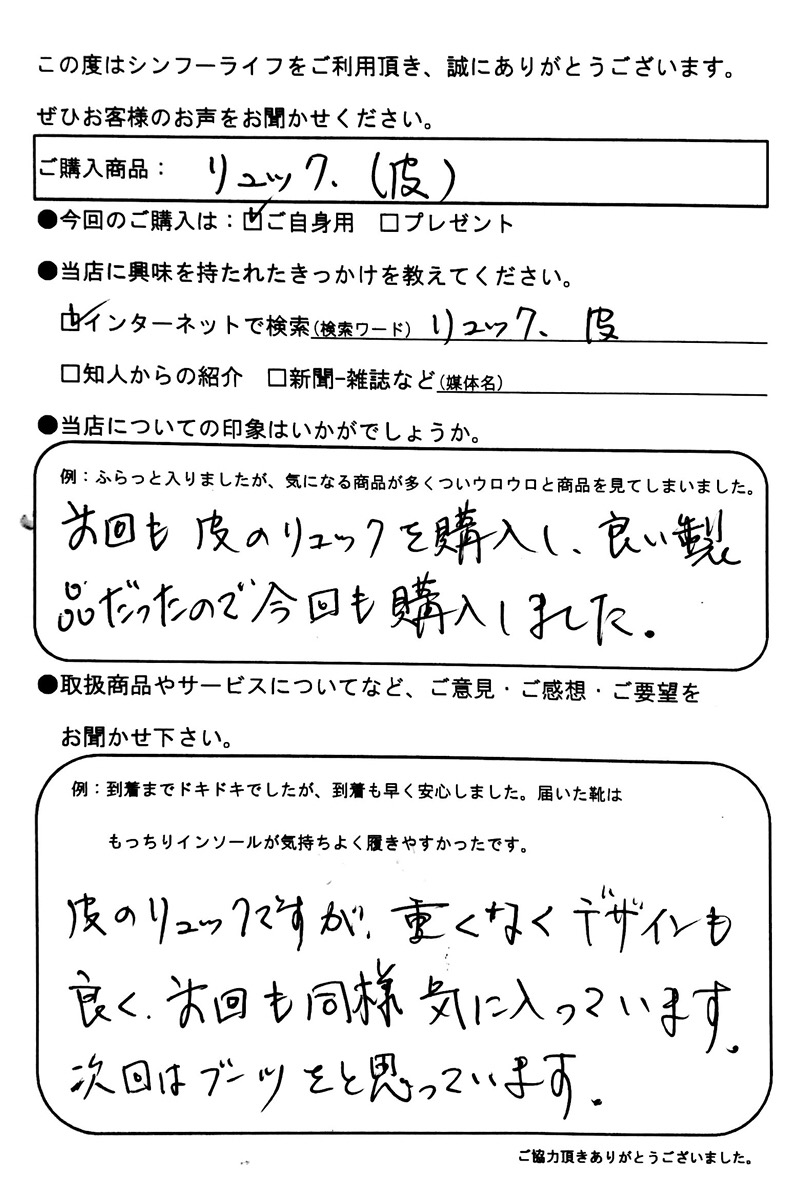 この度はシンフーライフをご利用頂き、誠にありがとうございます。
ぜひお客様のお声をお聞かせください。
ご購入商品： リュック、(皮)
●今回のご購入は：☑ご自身用 □プレゼント
●当店に興味を持たれたきっかけを教えてください。
☑インターネットで検索(検索ワード) リュック、皮
□知人からの紹介 □新聞-雑誌など(媒体名)
●当店についての印象はいかがでしょうか。
例：ふらっと入りましたが、気になる商品が多くついウロウロと商品を見てしまいました。
前回も皮のリュックを購入し、良い製
品だったので今回も購入しました。
●取扱商品やサービスについてなど、ご意見・ご感想・ご要望を
お聞かせ下さい。
例：到着までドキドキでしたが、到着も早く安心しました。届いた靴は
もっちりインソールが気持ちよく履きやすかったです。
皮のリュックですが、重くなくデザインも
良く、前回も同様気に入っています。
次回はブーツをと思っています。
ご協力頂きありがとうございました。